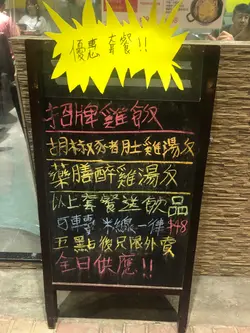 優惠套餐!!
招牌雞飯
胡椒豬肚雞湯飯
藥膳醉雞湯飯
以上套餐送飲品
米線一律$48
五點後只限外賣
全日供應!!